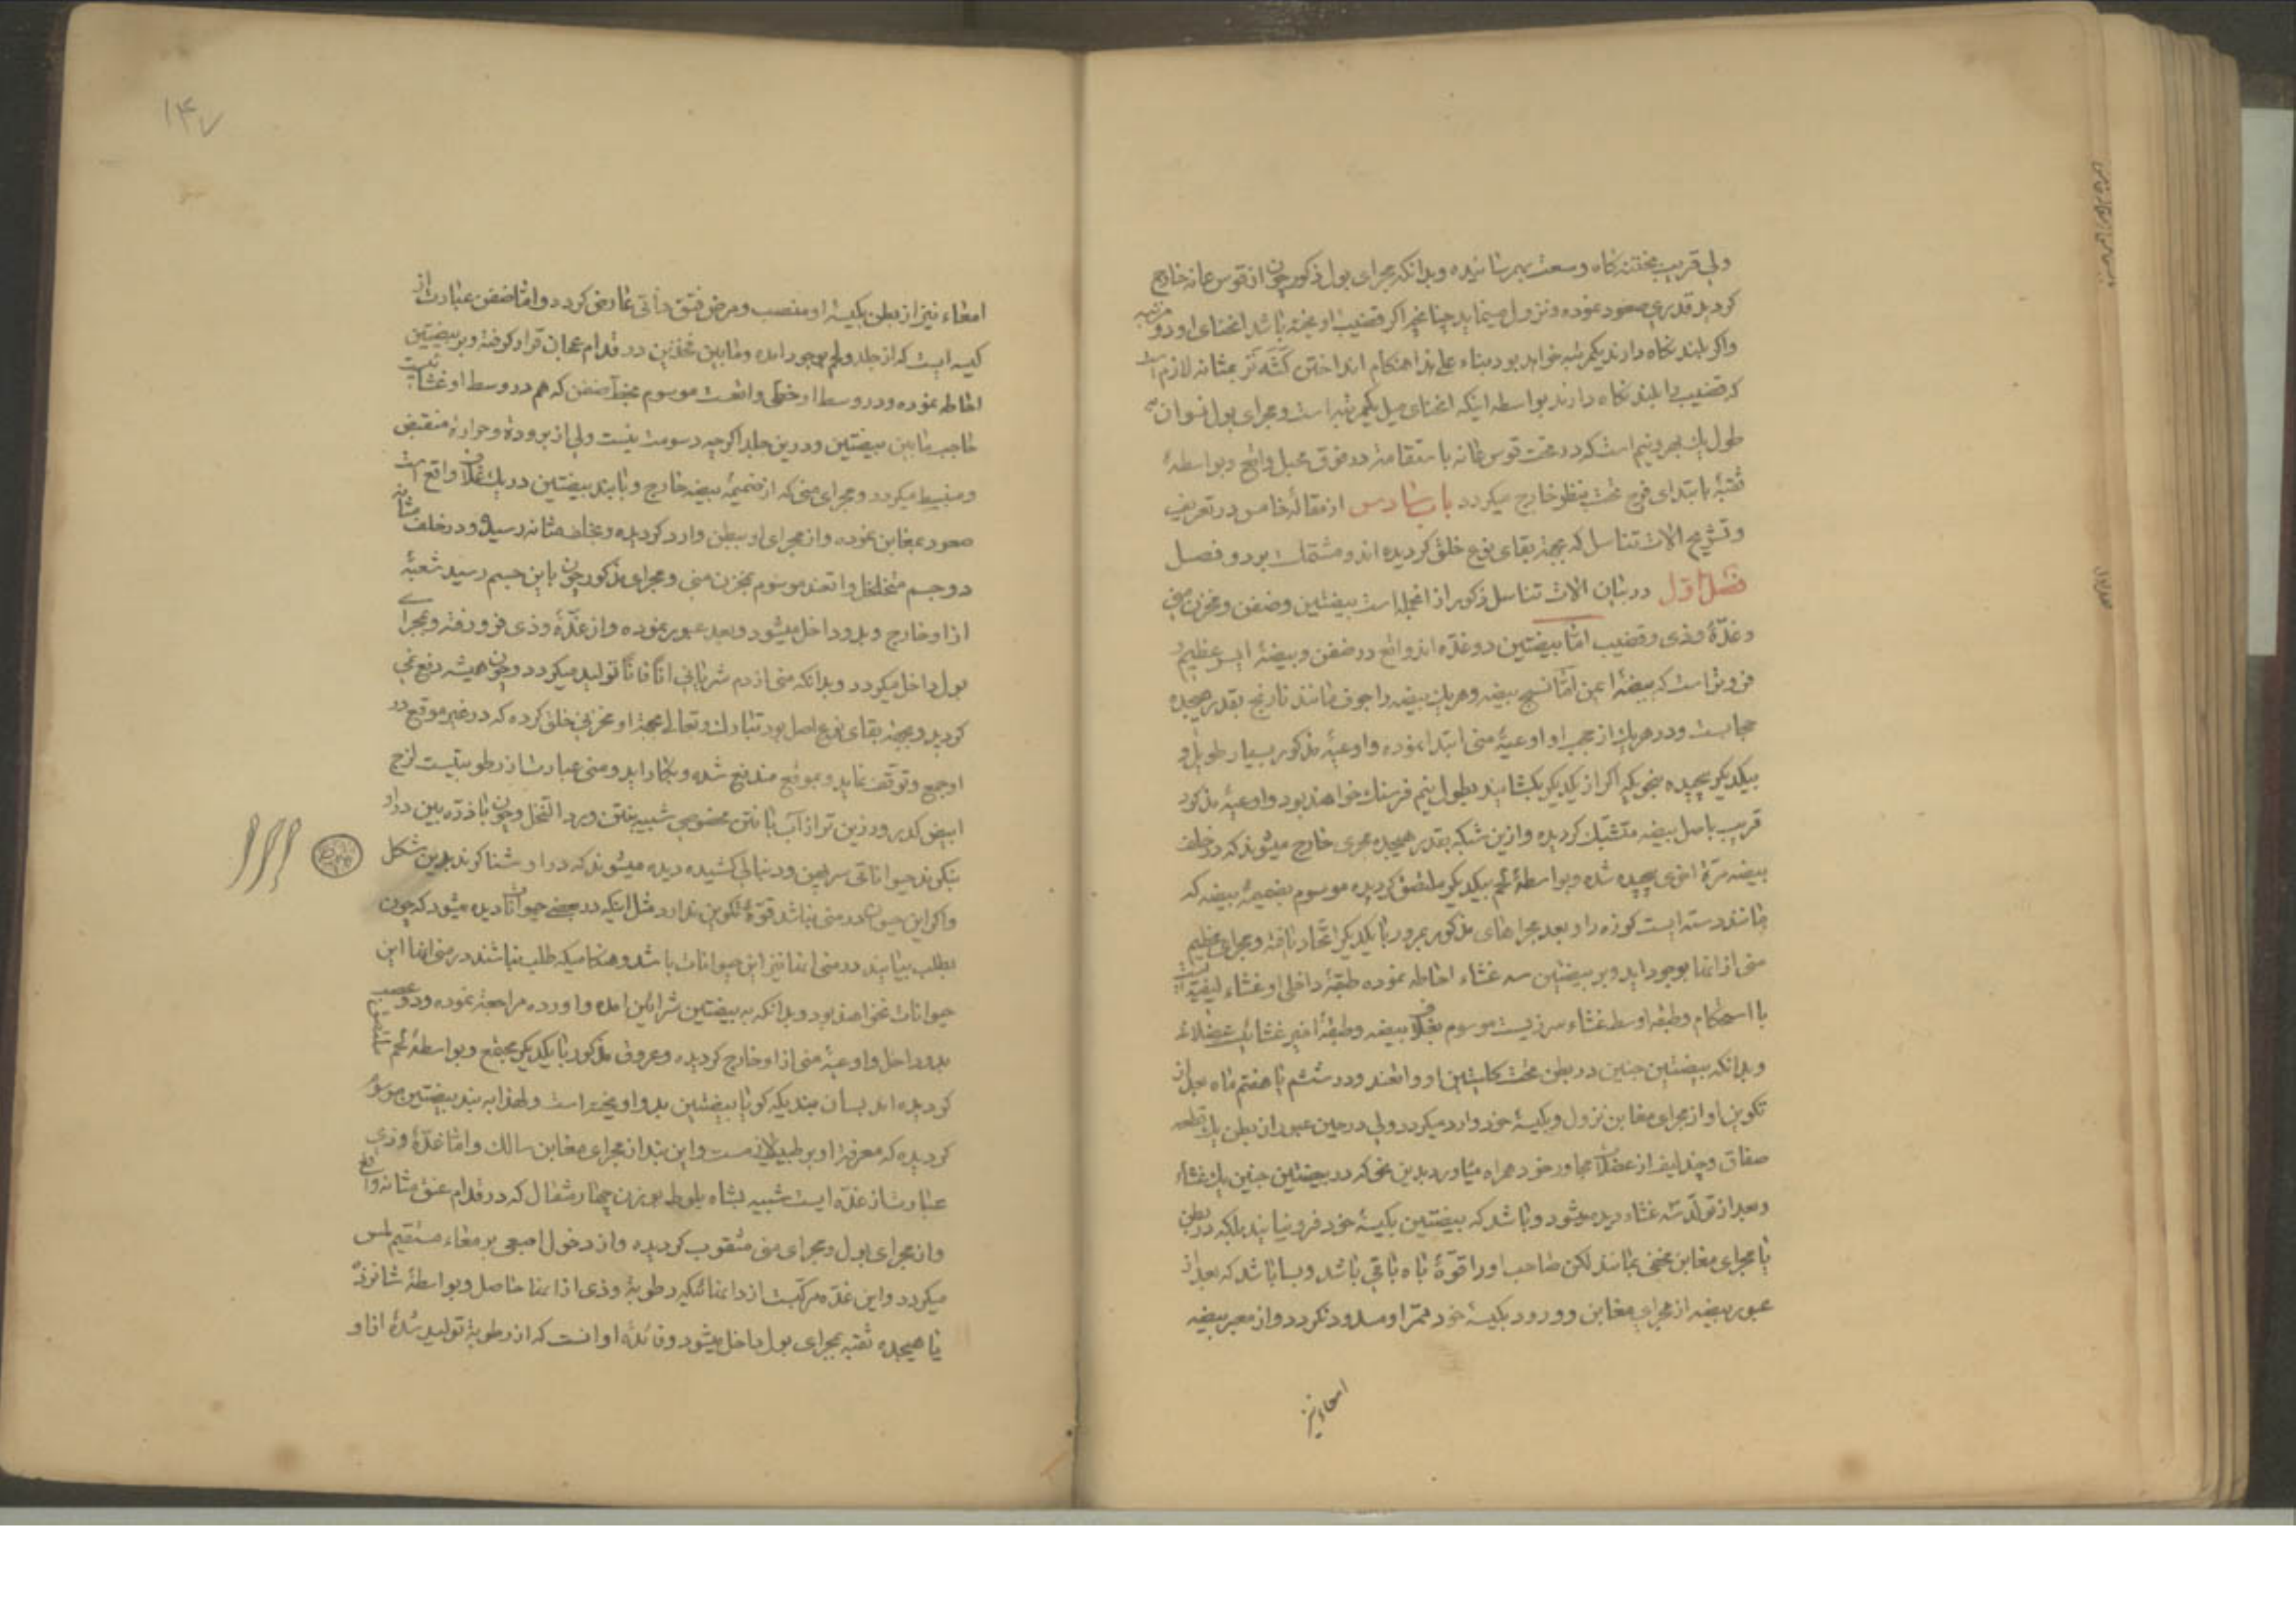 ولی قریب بختنه کاه وسعت بهرسانیده وبدانکه مجرای بول ذکور چون از قوس عانه خارج
کردید قدری صعود نموده ونزول مینماید چنانچه اکر قضیب اویخته باشد انحنای او دو مرتبه
واکر بلند نکاه دارند یکمرتبه خواهد بود بناء علی هذا هنکام انداختن بمثانه لازم است
که قضیب را بلند نکاه دارند بواسطه اینکه انحنای میل یکمرتبه است ومجرای بول نسوان
طول یک بهر ونیم است که در تحت قوس عانه باستقامة در فوق مهبل واقع وبواسطهٔ
ثقبهٔ بابتدای فرج تحت بظر خارج میکردد باب سادس از مقالهٔ خامس در تعریف
وتشریح الات تناسل که بجهة بقای نوع خلق کردیده اند ومشتملست بر دو فصل
فصل اول در بیان الات تناسل ذکور از انجمله است بیضتین وضفن ومخزن منی
وغدّهٔ وذی وقضیب امّا بیضتین دو غدّه اند واقع در ضفن وبیضهٔ ایسر عظیم
فروتر است که بیضهٔ ایمن امّا نسیج بیضه وهریک بیضه را جوف مانند نارنج بقدر هیجده
حجابست ودر هریک از حجب او اوعیهٔ منی ابتدا نموده واوعیهٔ مذکور بسیار طویل و
بیکدیکر پیچیده بنحویکه اکر از یکدیکر بکشایند بطول نیم فرسنک خواهند بود واوعیهٔ مذکور
قریب باصل بیضه متشبّک کردیده وازین شبکه بقدر هیجده مجری خارج میشوند که در خلف
بیضه مرّة اخری پیچیده شده وبواسطهٔ لحم بیکدیکر ملتصق کردیده موسوم بضمیمهٔ بیضه که
مانند دسته ایست کوزه را وبعد مجراهای مذکور بمرور با یکدیکر اتّحاد یافته ومجرای عظیم
منی از انها بوجود اید وبر بیضتین سه غشاء احاطه نموده طبقهٔ داخلی او غشاء لیفیّه ایست
با استحکام وطبقه اوسط غشاء سرزیست موسوم بغلاف بیضه وطبقهٔ اخیر غشائیست عضلانی
وبدانکه بیضتین جنین در بطن تحت کلیتین او واقعند ودر ششم یا هفتم ماه بعد از
تکوین او از مجرای مغابن نزول وبکیسهٔ خود وارد میکردد ولی در حین عبور از بطن یک قطعه
صفاق وچند لیف از عضلات مجاور خود همراه میاورد بدین نحو که در بیضتین جنین یک غشاء
وبعد از تولّد سه غشاء دیده میشود وباشد که بیضتین بکیسهٔ خود فرو نیایند بلکه در بطن
یا مجرای مغابن مخفی بمانند لکن صاحب او را قوّهٔ باه باقی باشد وبسا باشد که بعد از
عبور بیضه از مجرای مغابن وورود بکیسهٔ خود ممرّ او مسدود نکردد واز معبر بیضه
امعاء نیز
۱۴۷
امعاء نیز از بطن بکیسهٔ او منصب ومرض فتق ذاتی عارض کردد وامّا ضفن عبارت از
کیسه ایست که از جلد ولحم بوجود امده ومابین فخذین در قدام عجان قرار کرفته وبر بیضتین
احاطه نموده ودر وسط او خطی واقعست موسوم بخط ضفن که هم در وسط او غشائیست
حاجب مابین بیضتین ودرین جلد اکرچه دسومت نیست ولی از برودة وحرارة منقبض
ومنبسط میکردد ومجرای منی که از ضمیمهٔ بیضه خارج وبا بند بیضتین در یک غلاف واقع است
صعود بمغابن نموده واز مجرای او ببطن وارد کردیده وبخلف مثانه رسیده ودر خلف مثانه
دو جسم متخلخل واقعند موسوم بمخزن منی ومجرای مذکور چون باین جسم رسید شعبهٔ
از او خارج وبدو داخل میشود وبعد عبور نموده واز غدّهٔ وذی فرو رفته وبمجرای
بول داخل میکردد وبدانکه منی از دم شریانی انًا فانًا تولید میکردد وچون همیشه دفع نمی
کردید وبجهة بقای نوع اصل بود تبارک وتعالی بجهة او مخزنی خلق کرده که در غیر موقع در
او جمع وتوقف نماید وبموقع مندفع شده وبکار اید ومنی عبارتست از رطوبتیست لزج
ابیض کدر ورزین تر از آب با نتن مخصوصی شبیه بنتن ورد النخل وچون با ذرّه بین در او
بنکرند حیواناتی سر پهن ودنبالی کشیده دیده میشوند که در او شنا کنند بدین شکل
واکر این حیوان در منی نباشد قوّهٔ تکوین ندارد مثل اینکه در بعضی حیوانات دیده میشود که چون
بطلب بیایند در منی انها نیز این حیوانات باشد وهنکامیکه طلب نباشند در منی انها این
حیوانات نخواهند بود وبدانکه به بیضتین شرائین امده واورده مراجعت نموده ودو عصب
بدو داخل واوعیهٔ منی از او خارج کردیده وعروق مذکور با یکدیکر مجتمع وبواسطهٔ لحم
کردیده اند بسان بندیکه کویا بیضتین بدو اویخته است ولهذا به بند بیضتین موسوم
کردیده که معرفة او بر طبیب لازمست واین بند از مجرای مغابن سالک وامّا غدّهٔ وذی
عبارتست از غدّه ایست شبیه بشاه بلوط بوزن چهار مثقال که در قدام عنق مثانه واقع
واز مجرای بول ومجرای منی مثقوب کردیده واز دخول اصبعی بر معاء مستقیم لمس
میکردد واین غدّه مرکّبست از دانهائیکه رطوبة وذی از انها حاصل وبواسطهٔ شانزده
یا هیجده ثقبه بمجرای بول داخل میشود وفائدهٔ او انست که از رطوبة تولید شدهٔ از او